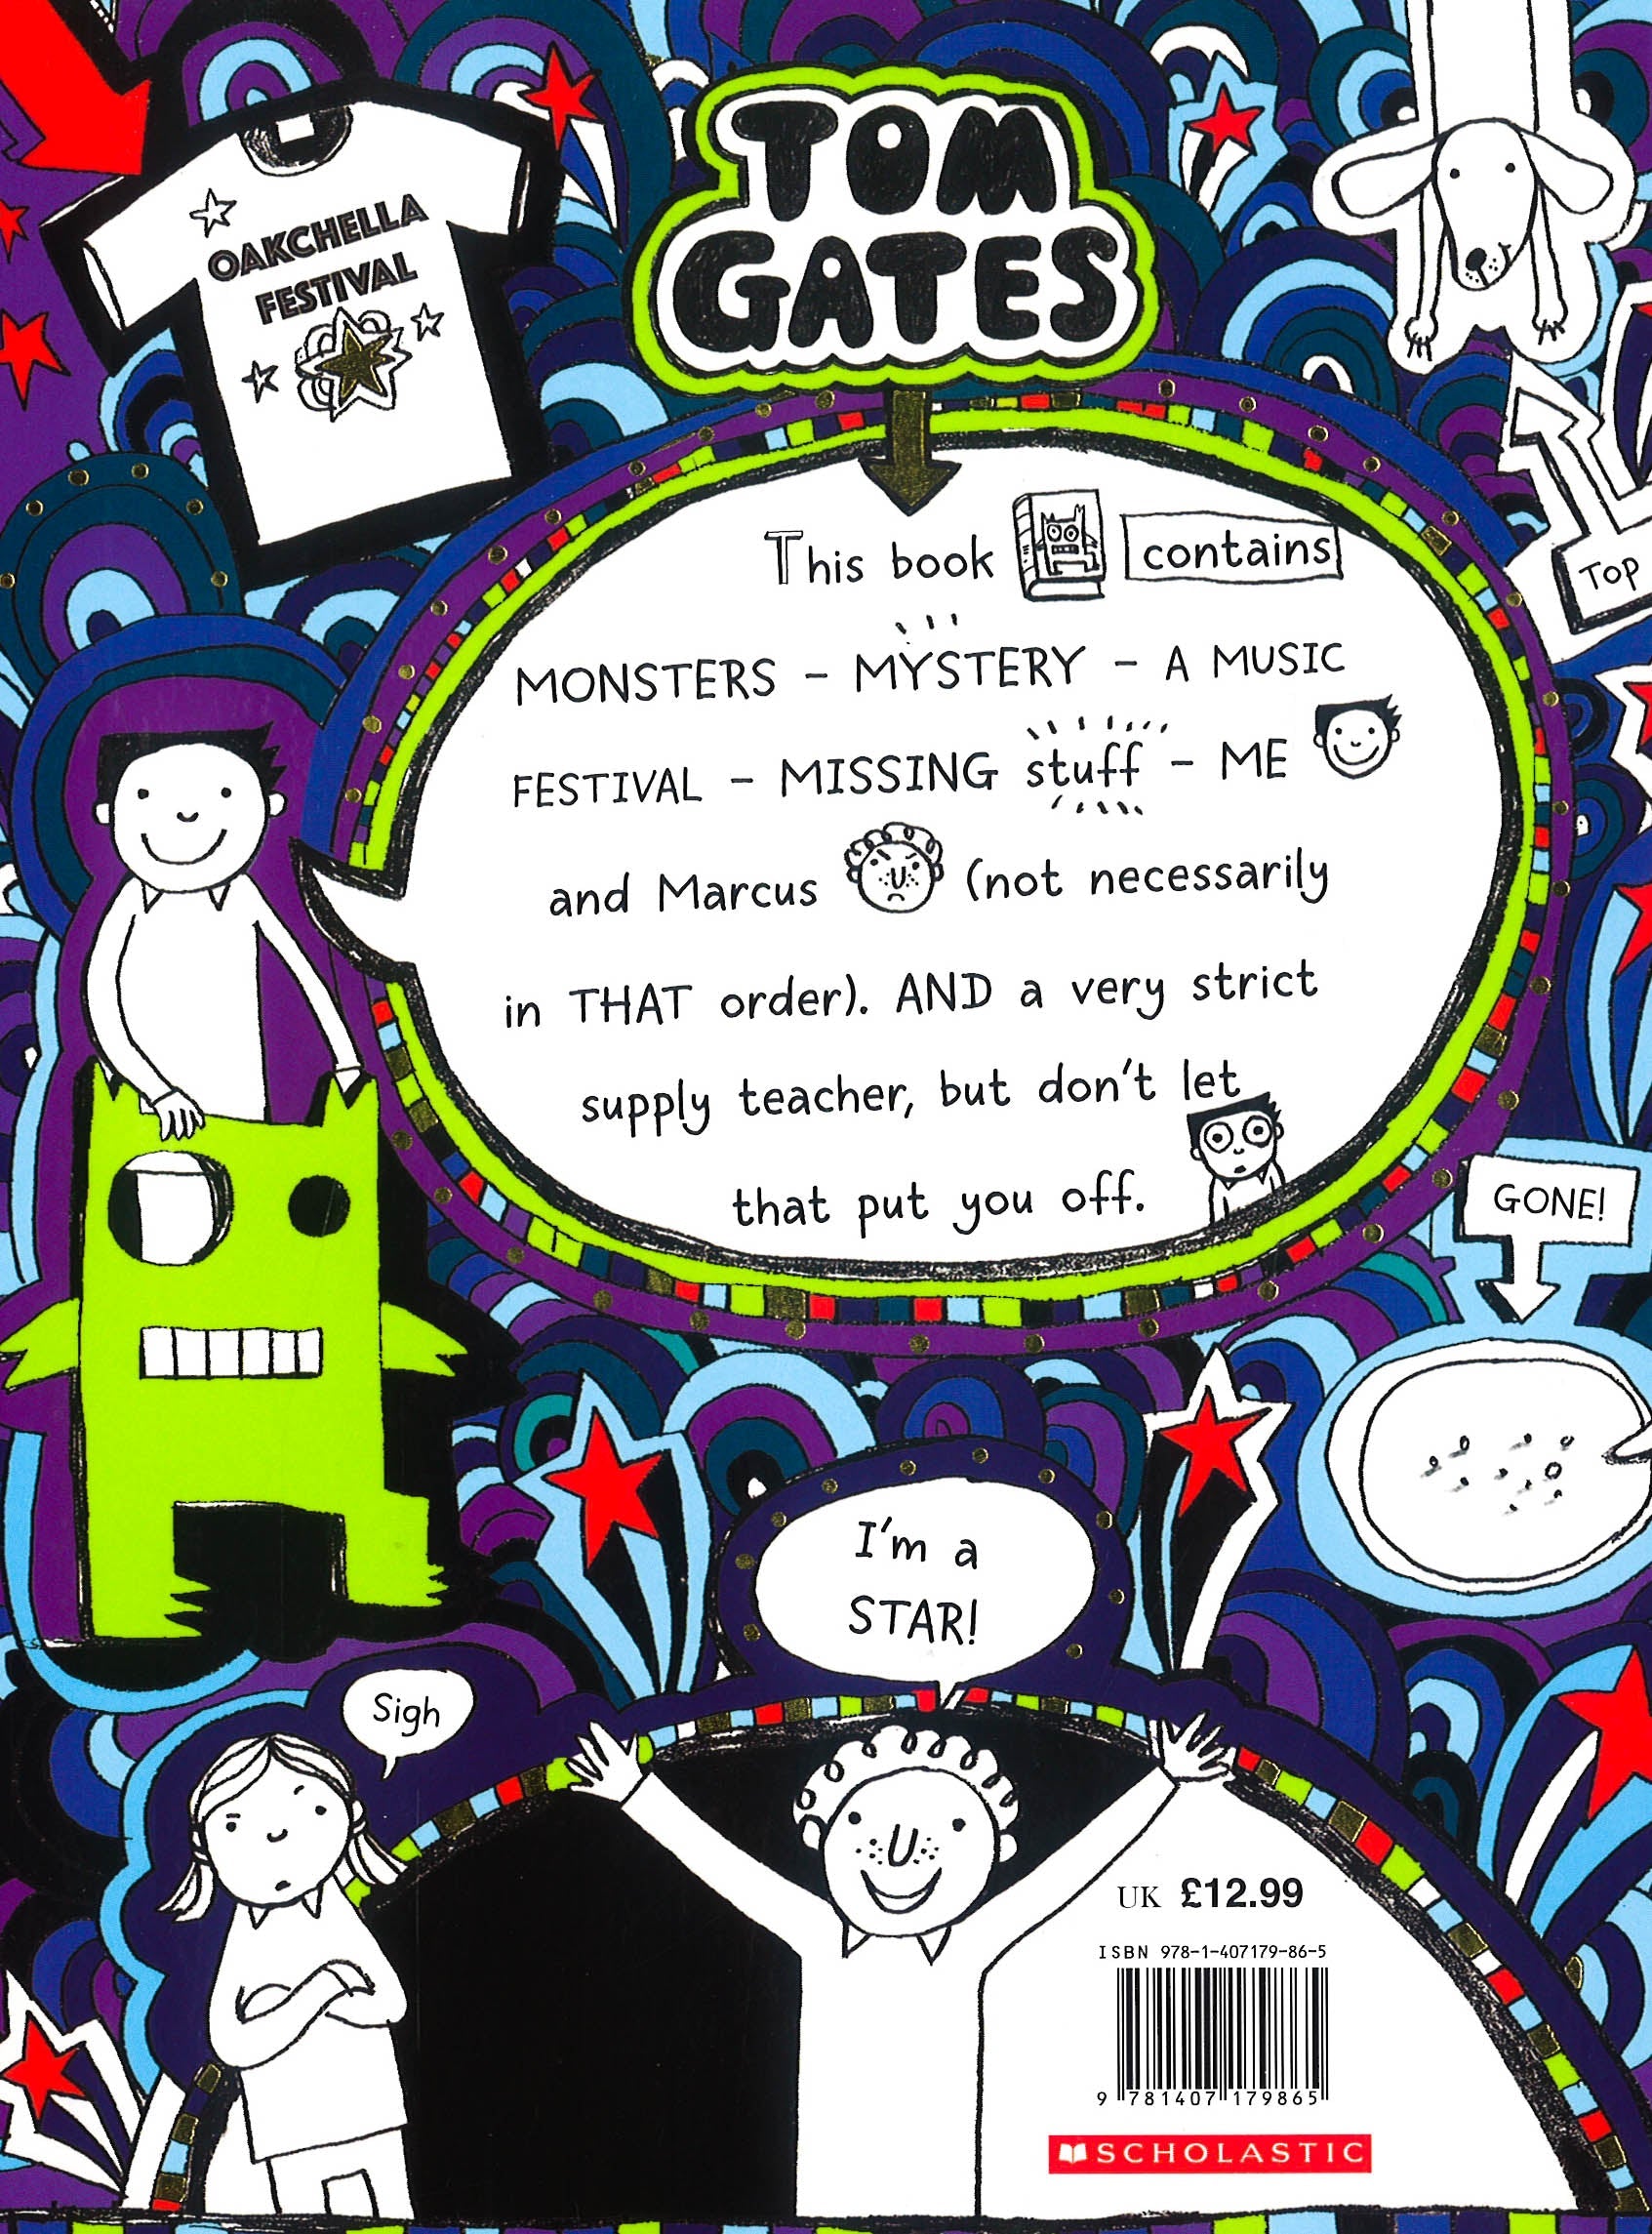 OAKCHELLA
FESTIVAL
TOM
GATES
This book contains
MONSTERS – MYSTERY – A MUSIC
FESTIVAL – MISSING stuff – ME
and Marcus (not necessarily
in THAT order). AND a very strict
supply teacher, but don't let
that put you off.
TOP
GONE!
I'm a
STAR!
Sigh
UK £12.99
ISBN 978-1-407179-86-5
9 781407 179865
SCHOLASTIC